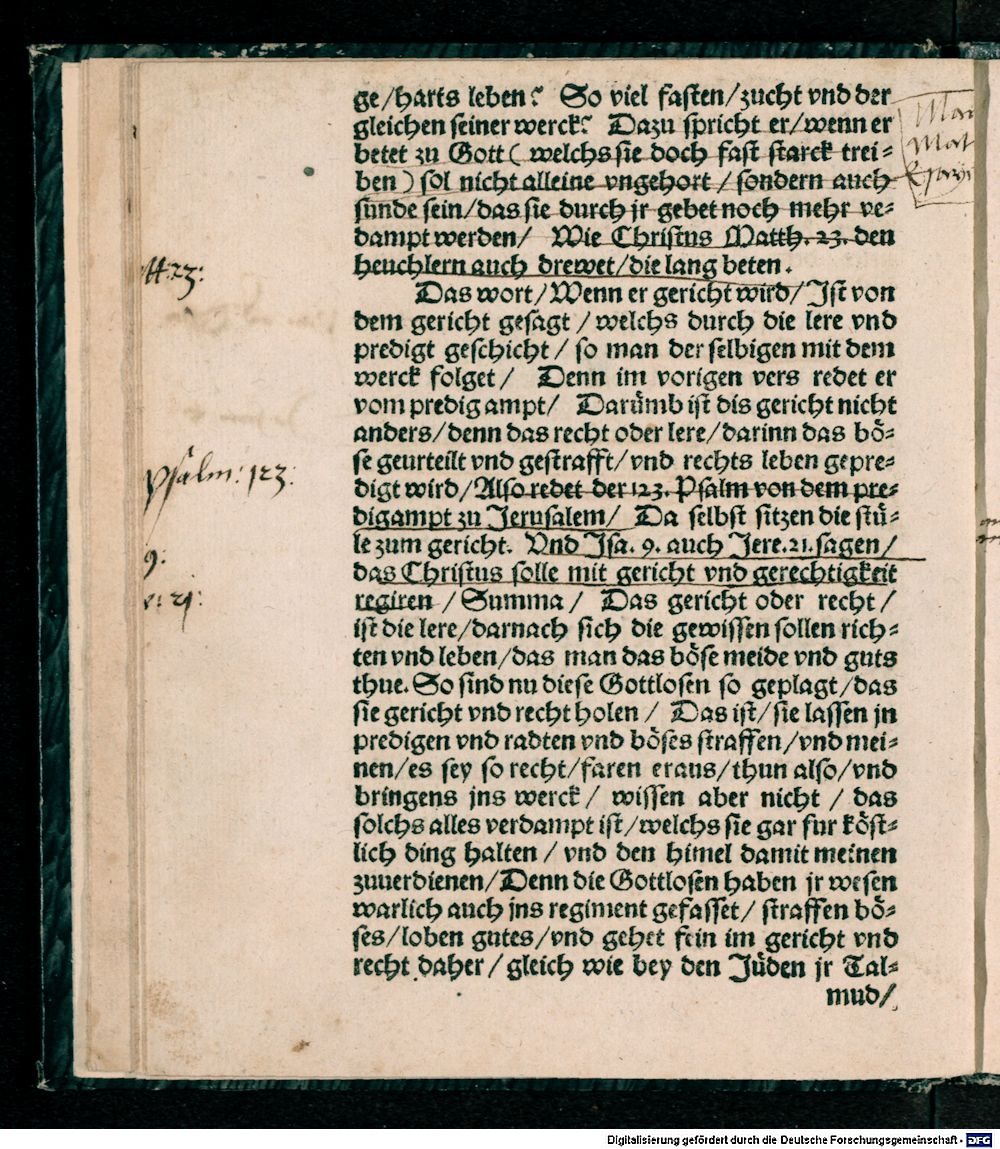 ge/harts leben? So viel fasten/zucht vnd der
gleichen seiner werck? Dazu spricht er/wenn er
betet zu Gott ( welchs sie doch fast starck trei-
ben ) sol nicht alleine vngehort / sondern auch
sunde sein/das sie durch jr gebet noch mehr ve-
dampt werden/ Wie Christus Matth. 23. den
heuchlern auch drewet/die lang beten.
tt: 23:
Das wort/Wenn er gericht wird/Ist von
dem gericht gesagt / welchs durch die lere vnd
predigt geschicht / so man der selbigen mit dem
werck folget / Denn im vorigen vers redet er
vom predig ampt/ Darümb ist dis gericht nicht
anders/denn das recht oder lere/darinn das bö-
se geurteilt vnd gestrafft/vnd rechts leben gepre-
psalm: 123:
digt wird/Also redet der 123. Psalm von dem pre-
digampt zu Jerusalem/ Da selbst sitzen die stü-
le zum gericht. Vnd Jsa. 9. auch Jere.21.sagen/
9:
das Christus solle mit gericht vnd gerechtigkeit
regiren / Summa / Das gericht oder recht /
: 21:
ist die lere/darnach sich die gewissen sollen rich-
ten vnd leben/das man das böse meide vnd guts
thue. So sind nu diese Gottlosen so geplagt/das
sie gericht vnd recht holen / Das ist/sie lassen jn
predigen vnd radten vnd böses straffen/vnd mei-
nen/es sey so recht/faren eraus/thun also/vnd
bringens jns werck / wissen aber nicht / das
solchs alles verdampt ist/welchs sie gar fur köst-
lich ding halten / vnd den himel damit meinen
zuuerdienen/Denn die Gottlosen haben jr wesen
warlich auch jns regiment gefasset/ straffen bö-
ses/loben gutes/vnd gehet fein im gericht vnd
recht daher/gleich wie bey den Jüden jr Tal-
mud/
Digitalisierung gefördert durch die Deutsche Forschungsgemeinschaft - DFG